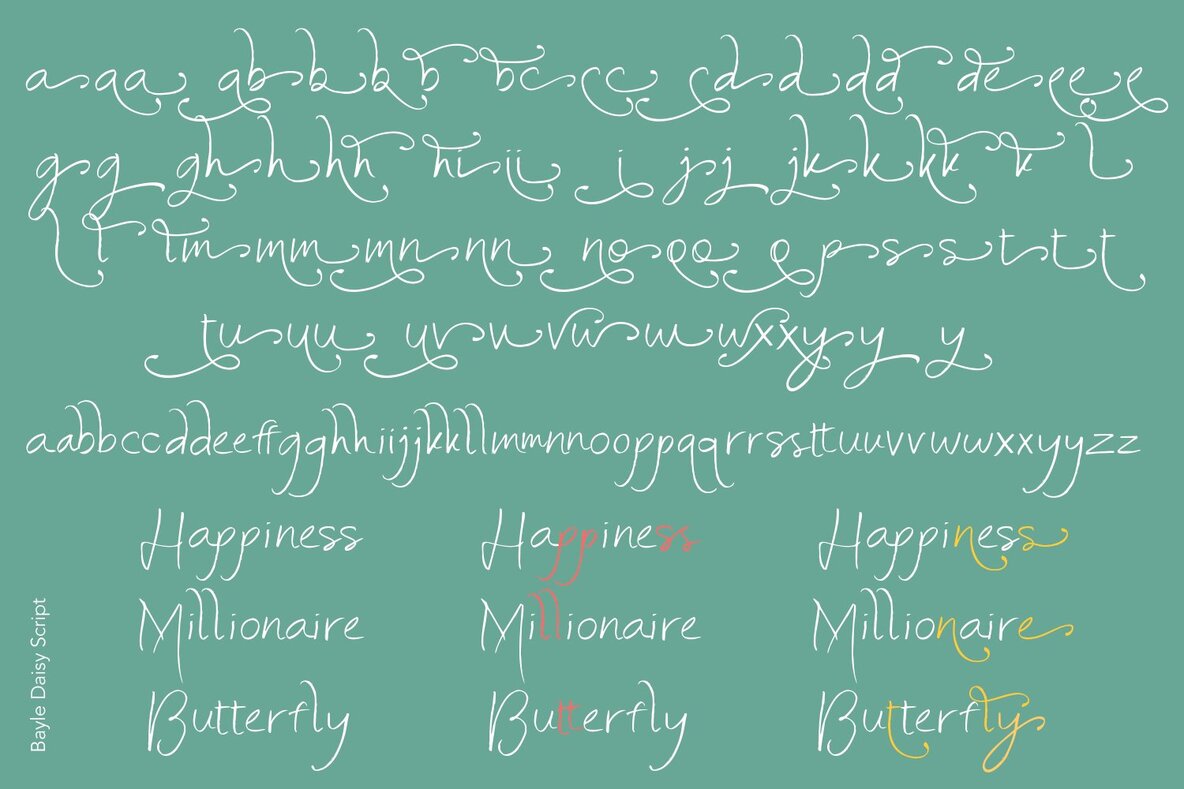 a a a a b b b b b c c c c d d d d d e e e e
g g g h h h h h i i i i j j j k k k k k l
l l l m m m m n n n n o o o o p s s t t t
t u u u u v v v w w w w x x y y y
aabbccddeeffgghhiijjkkllmmnnooppqqrrssttuuvvwwxxyyzz
Happiness Happiness Happiness
Millionaire Millionaire Millionaire
Butterfly Butterfly Butterfly
Bayle Daisy Script